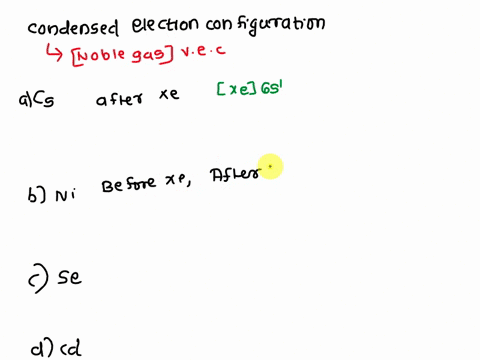 condensed election configuration
↳ [Noble gas] v.e.c
a) Cs after xe [xe] 6s¹
b) Ni Before xe, After
c) se
d) cd